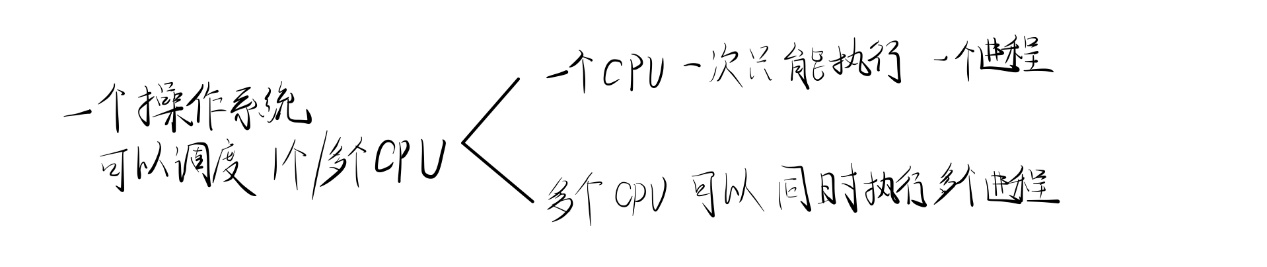 一个操作系统
可以调度 1个/多个CPU
一个CPU 一次只能执行 一个进程
多个 CPU 可以 同时执行多个进程